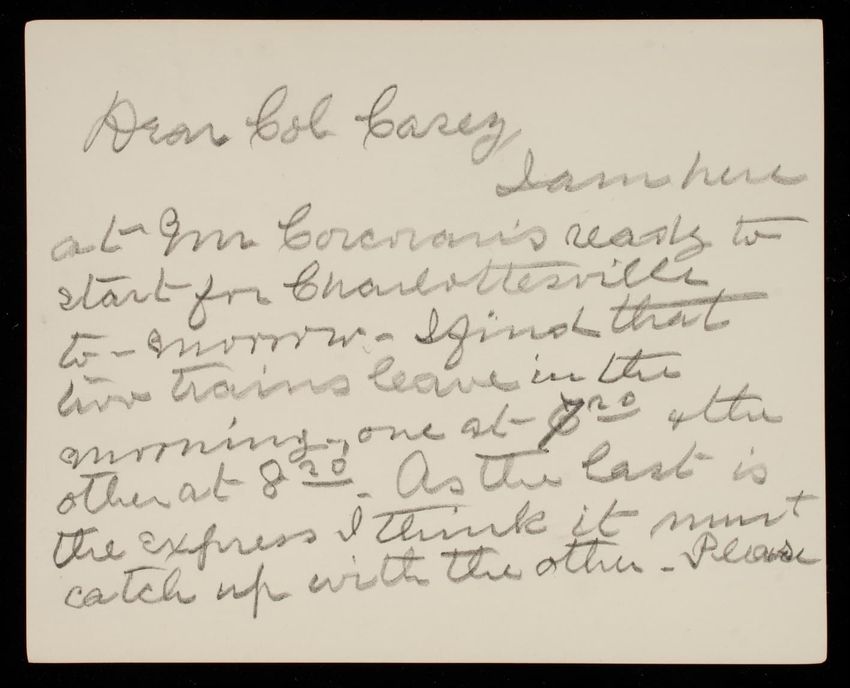 Dear Col Casey
I am here
at Mr Corcoran's ready to
start for Charlottesville
to-morrow - I find that
two trains leave in the
morning, one at 7 20 & the
other at 8 20. As the last is
the express I think it must
catch up with the other - Please